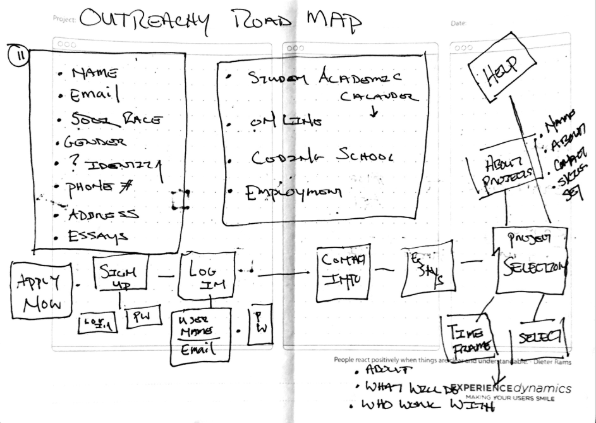 Project: OUTREACHY ROAD MAP
Date:
11
• NAME
• Email
• RACE
• GENDER
• ? IDENTITY
• PHONE #
• ADDRESS
• ESSAYS
• STUDENT ACADEMIC
CALANDER
• ONLINE
• CODING SCHOOL
• EMPLOYMENT
HELP
ABOUT
PROJECTS
• NAME
• ABOUT
• SKILLS
SET
APPLY
NOW
SIGN
UP
LOG
IN
CONTACT
INFO
PROJECT
SELECTION
LOG IN
PW
USER
NAME
Email
PW
TIME
FRAME
SELECT
People react positively when things are clear and understandable. Dieter Rams
• ABOUT
• WHAT WILL DO
• WHO WORK WITH
EXPERIENCEdynamics
MAKING YOUR USERS SMILE